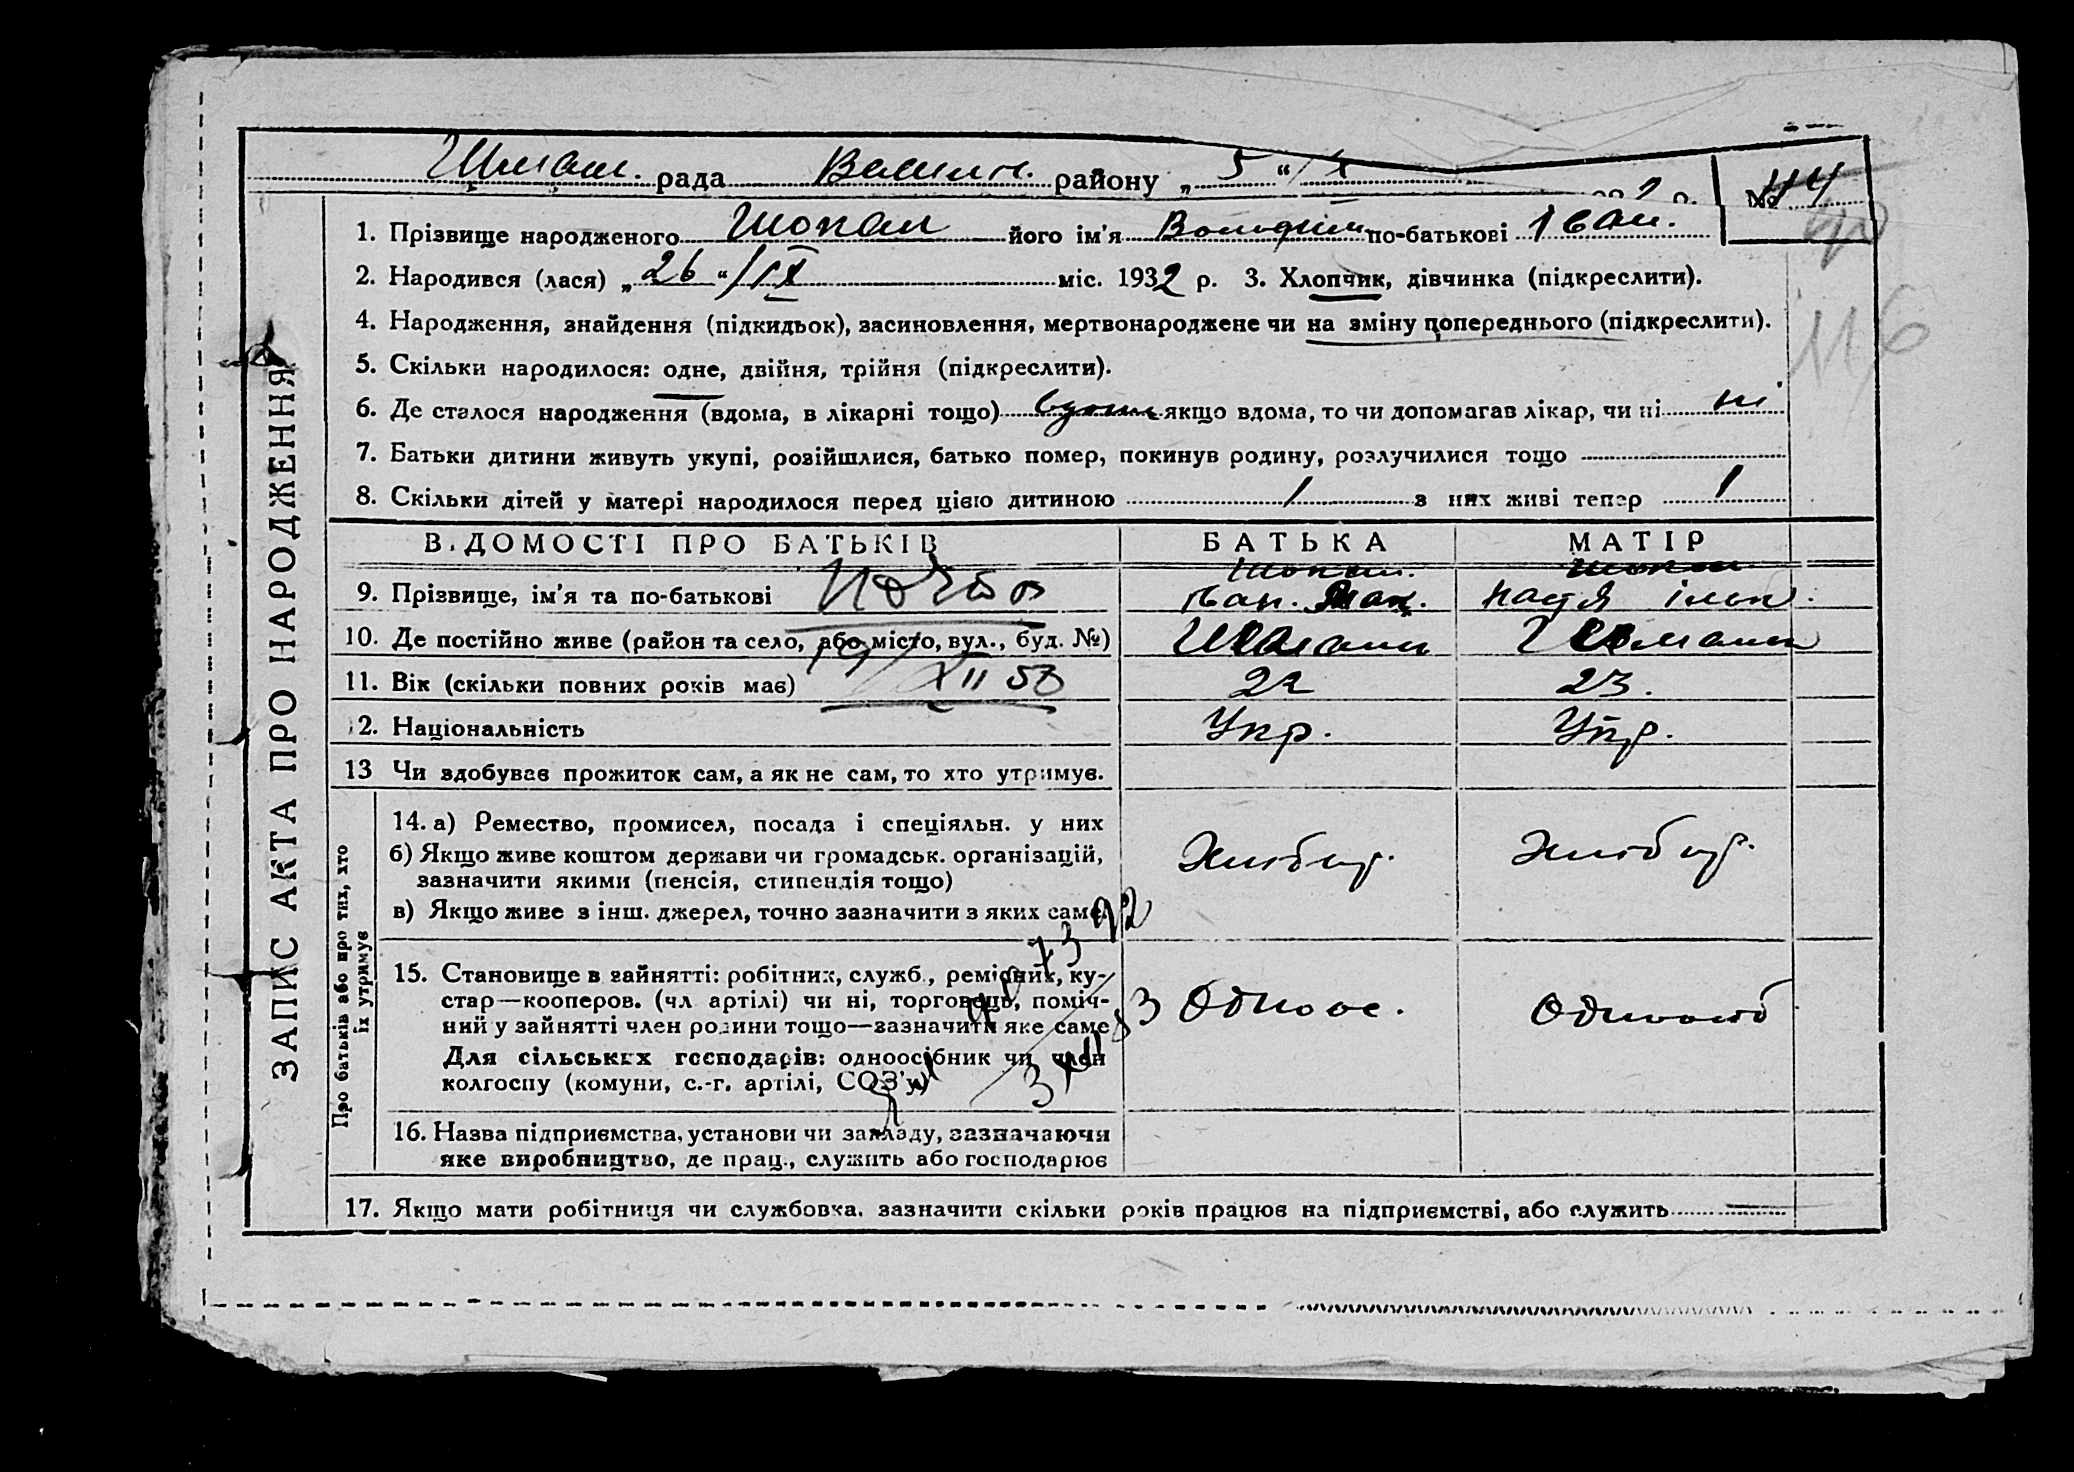 рада району „ 5 “ р. №
1. Прізвище народженого Шопал його ім'я Володим по-батькові Іван.
2. Народився (лася) „ 26 “ / IX міс. 1932 р. 3. Хлопчик, дівчинка (підкреслити).
4. Народження, знайдення (підкидьок), засиновлення, мертвонароджене чи на зміну попереднього (підкреслити).
116
5. Скільки народилося: одне, двійня, трійня (підкреслити).
6. Де сталося народження (вдома, в лікарні тощо) вдома якщо вдома, то чи допомагав лікар, чи ні ні
7. Батьки дитини живуть укупі, розійшлися, батько помер, покинув родину, розлучилися тощо
8. Скільки дітей у матері народилося перед цією дитиною 1 з них живі тепер 1
ВІДОМОСТІ ПРО БАТЬКІВ БАТЬКА МАТІР
9. Прізвище, ім'я та по-батькові Іван. Мак. Настя
10. Де постійно живе (район та село, або місто, вул., буд. №)
11. Вік (скільки повних років має) 22 23.
12. Національність Укр. Укр.
13 Чи здобуває прожиток сам, а як не сам, то хто утримує.
14. а) Ремество, промисел, посада і спеціяльн. у них
б) Якщо живе коштом держави чи громадськ. організацій, Хлібор. Хлібор.
зазначити якими (пенсія, стипендія тощо)
в) Якщо живе з інш. джерел, точно зазначити з яких саме.
15. Становище в зайнятті: робітник, служб., ремісник, ку-
стар—кооперов. (чл артілі) чи ні, торговець, поміч- Одноос. Одноосіб
ний у зайнятті член родини тощо—зазначити яке саме
Для сільських господарів: одноосібник чи член
колгоспу (комуни, с.-г. артілі, СОЗ'у)
16. Назва підприємства, установи чи закладу, зазначаючи
яке виробництво, де прац., служить або господарює
17. Якщо мати робітниця чи службовка, зазначити скільки років працює на підприємстві, або служить
ЗАПИС АКТА ПРО НАРОДЖЕННЯ
Про батьків або про тих, хто
їх утримує